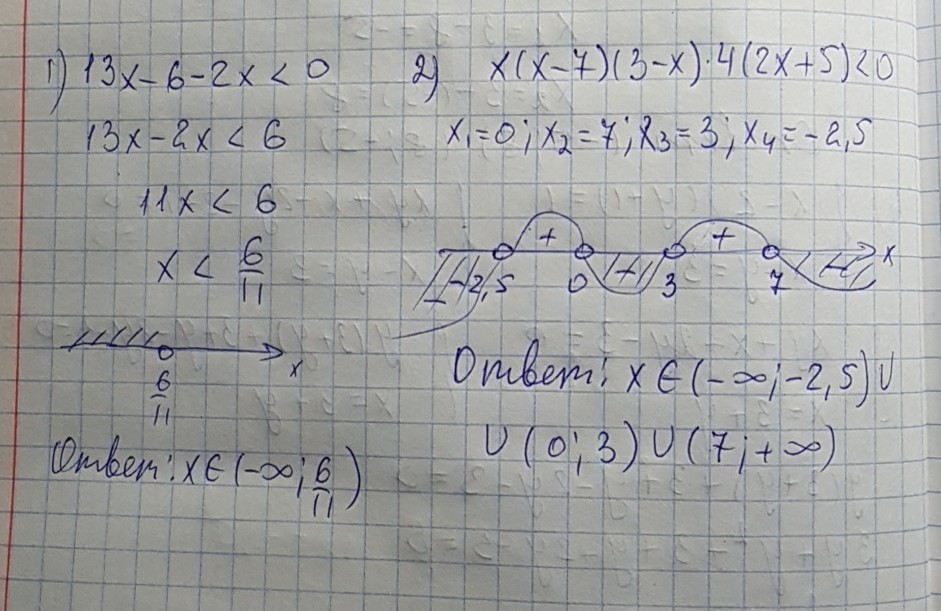 1) 13x-6-2x<0
13x-2x<6
11x<6
x<6/11
x
6/11
Ответ: x∈(-∞; 6/11)
2) x(x-7)(3-x)·4(2x+5)<0
x₁=0; x₂=7; x₃=3; x₄=-2,5
+ +
- - - x
-2,5 0 3 7
Ответ: x∈(-∞;-2,5)∪
∪(0;3)∪(7;+∞)